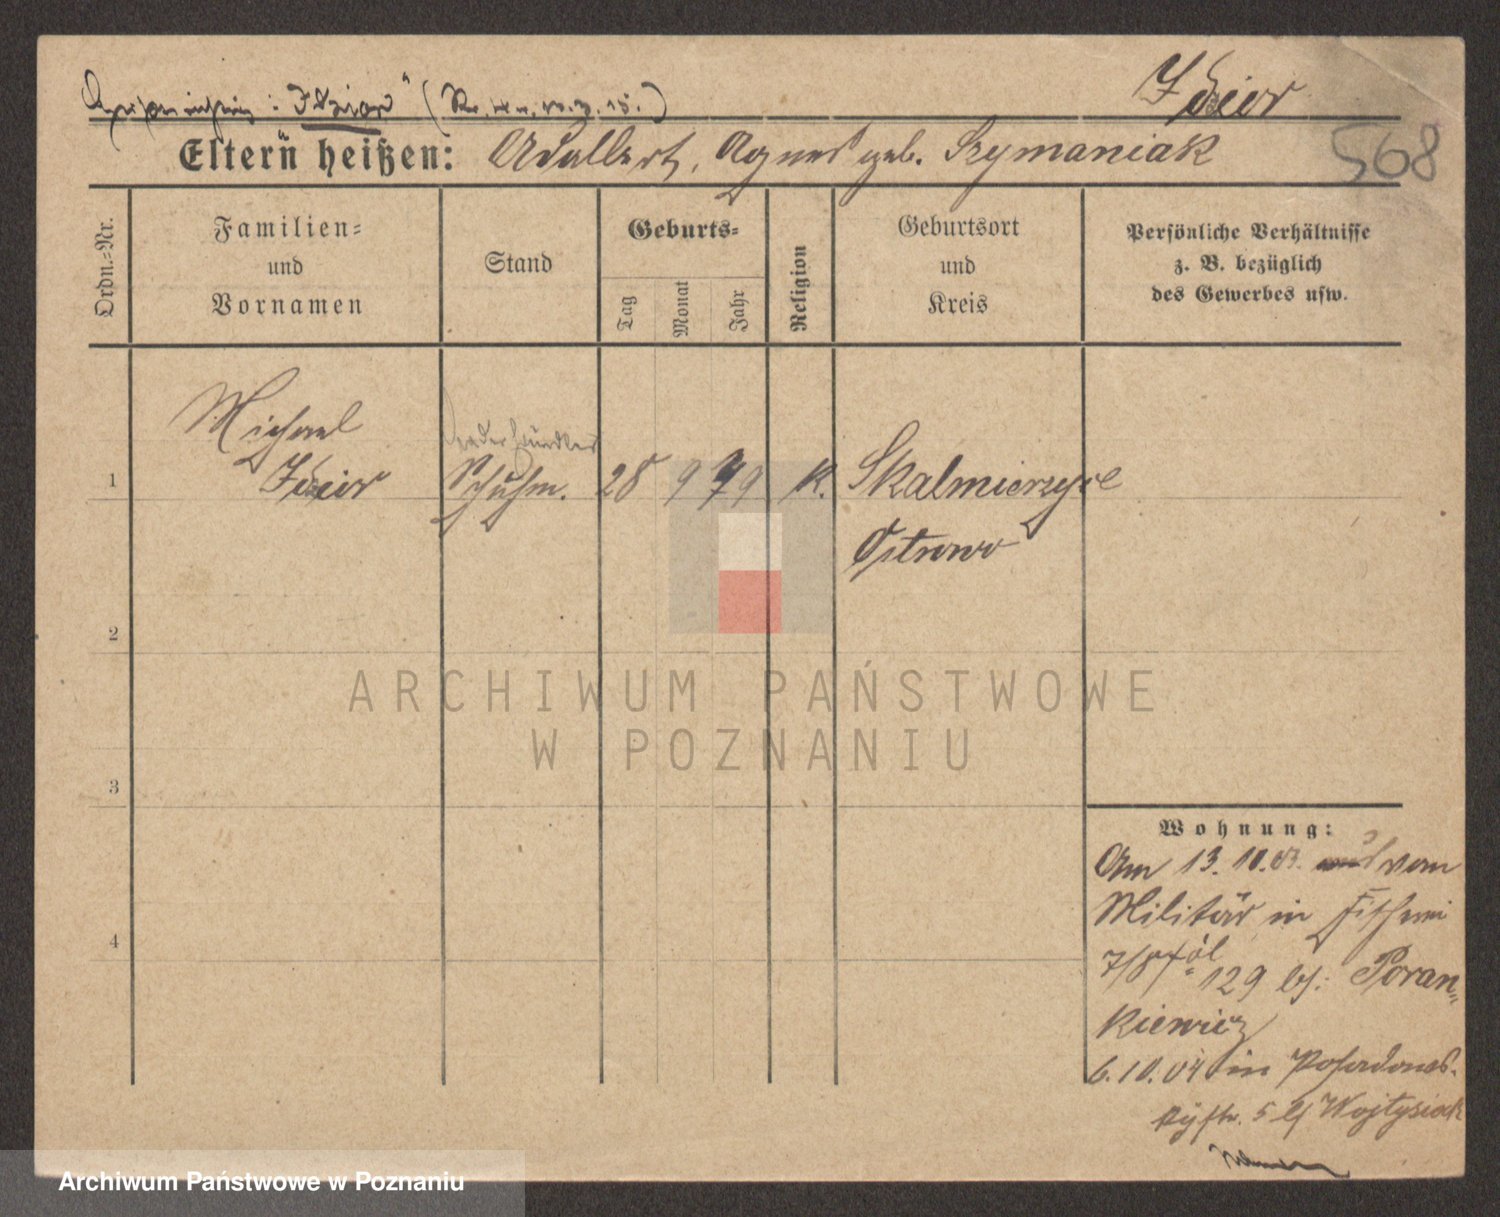 Idzior
Eltern heißen: Adalbert, Agnes geb. Szymaniak
568
Ordn.-Nr.
Familien-
und
Vornamen
Stand
Geburts-
Tag
Monat
Jahr
Religion
Geburtsort
und
Kreis
Persönliche Verhältnisse
z. B. bezüglich
des Gewerbes usw.
Michael
1 Schuhm. 28 9 79 K. Skalmierzyce
Ostrowo
2
ARCHIWUM PAŃSTWOWE
W POZNANIU
3
Wohnung:
Am 13.10.03. vom
Militär in
129 bei: Poran-
4
kiewicz
6.10.04 in
5 Wojtysiak
Archiwum Państwowe w Poznaniu